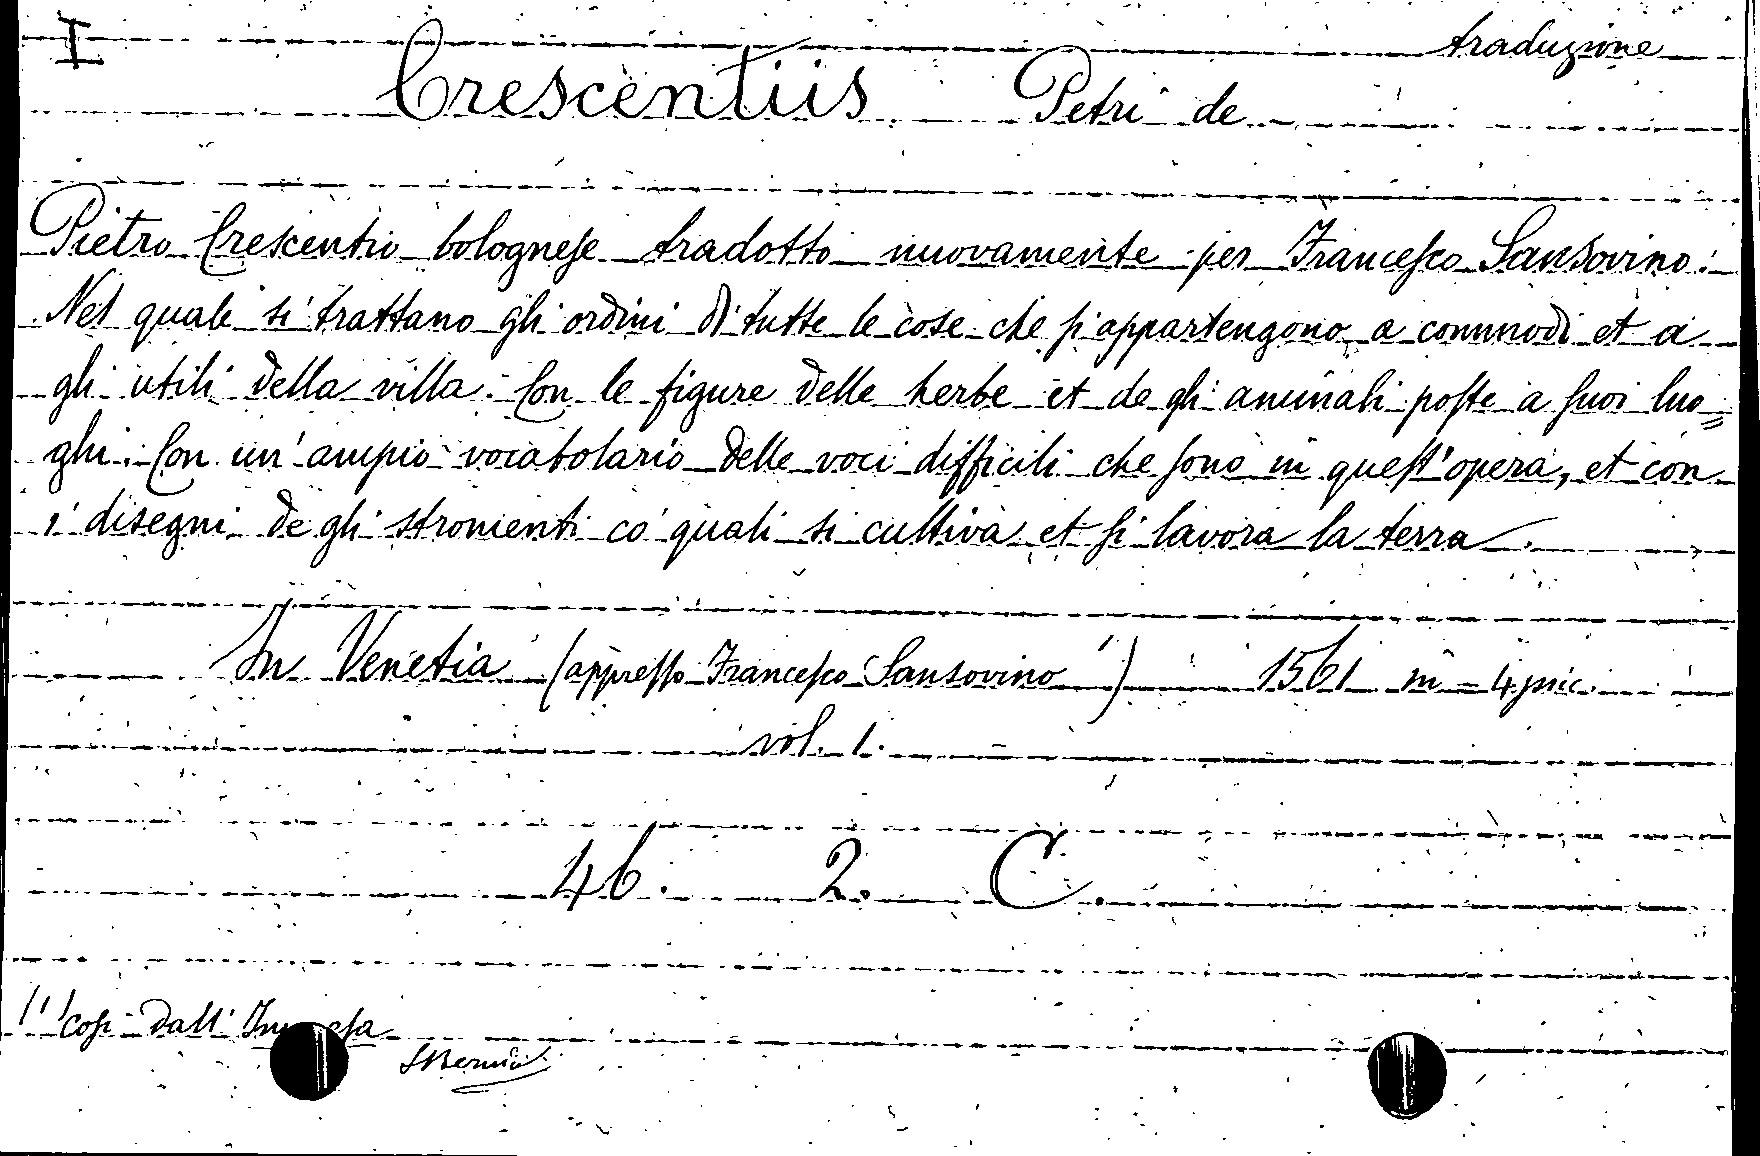 I traduzione
Crescentiis Petri de
Pietro Crescentio bolognese tradotto nuovamente per Francesco Sansovino.
Nel quale si trattano gli ordini di tutte le cose che si appartengono a commodi et a
gli utili della villa. Con le figure delle herbe et de gli animali poste a suoi luo=
ghi. Con un' ampio vocabolario delle voci difficili che sono in quest'opera, et con
i disegni de gli stromenti co' quali si cultiva et si lavora la terra.
In Venetia (appresso Francesco Sansovino ') 1561 in-4 pic.
vol. 1.
46. 2. C.
(') Cosi dall'